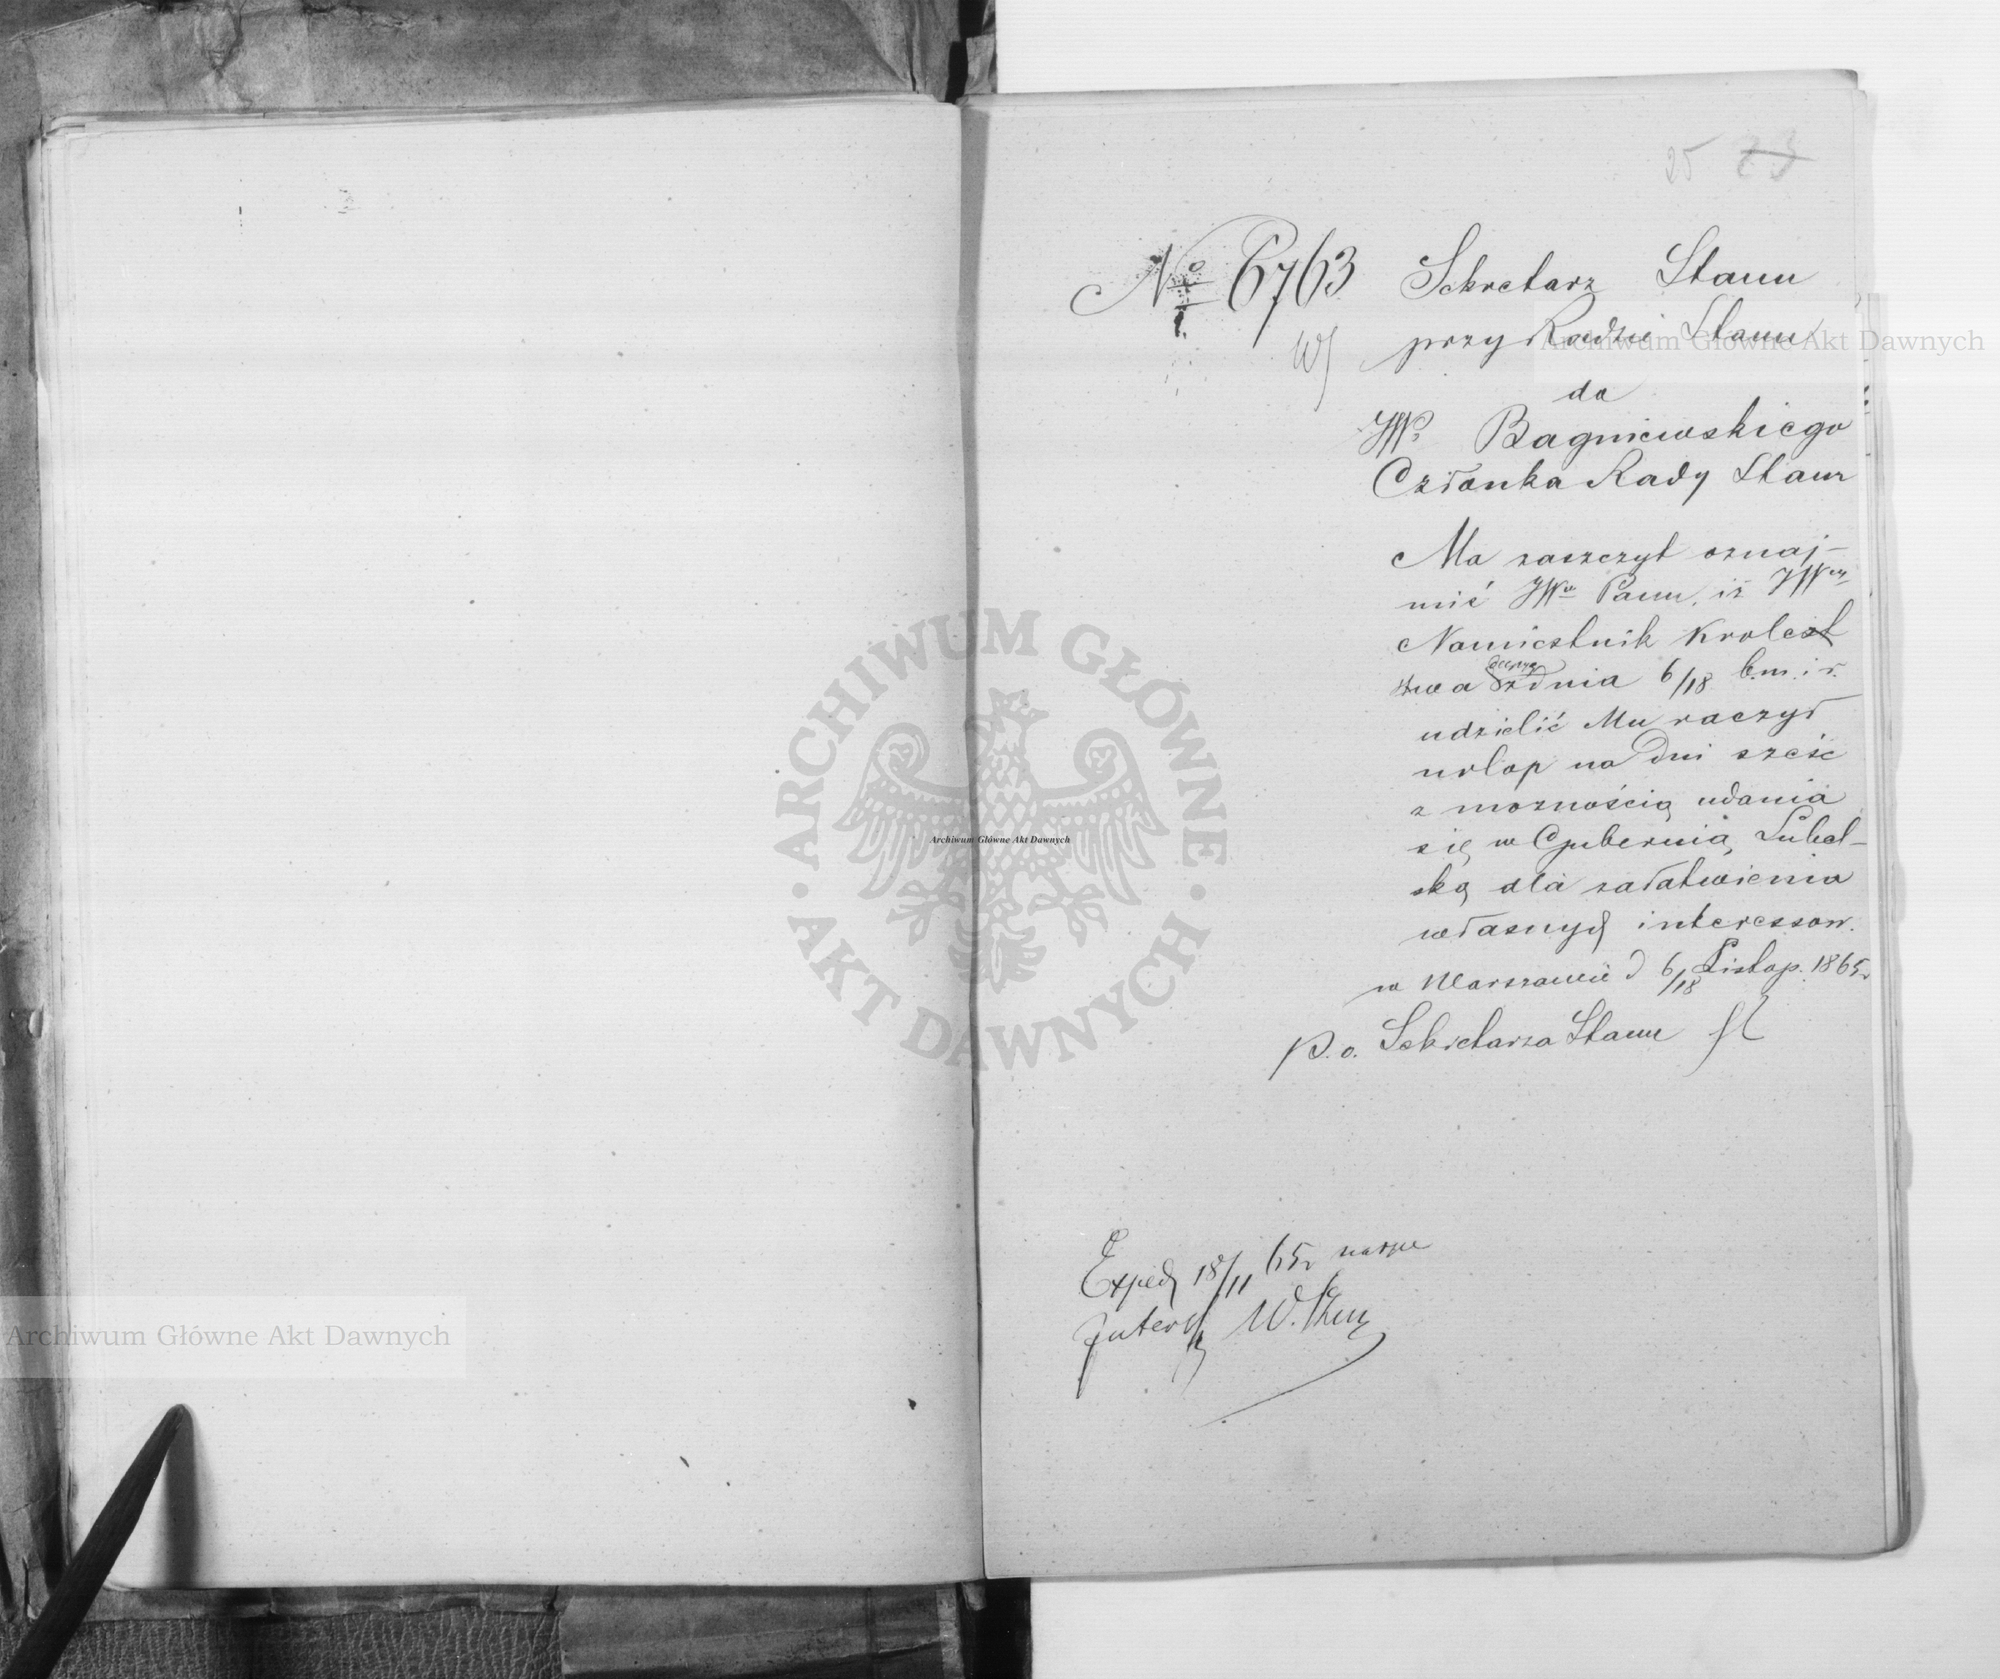 25 23
№ 6763
Sekretarz Stanu
przy Radzie Stanu
do
JWP. Bagniewskiego
Członka Rady Stanu
Ma zaszczyt oznaj-
mić JWu Panu, iż JW
Namiestnik Krolest
stwa decyzją z dnia 6/18 b.m. i r.
udzielić Mu raczył
urlop na dni sześć
z możnością udania
się w Gubernią Lubel-
ską dla załatwienia
własnych interessow.
w Warszawie d 6/18 Listop. 1865 r
p. o. Sekretarza Stanu
Exped 18/11 65 r
W.
Archiwum Główne Akt Dawnych
Archiwum Główne Akt Dawnych
Archiwum Główne Akt Dawnych
ARCHIWUM GŁÓWNE · AKT DAWNYCH ·